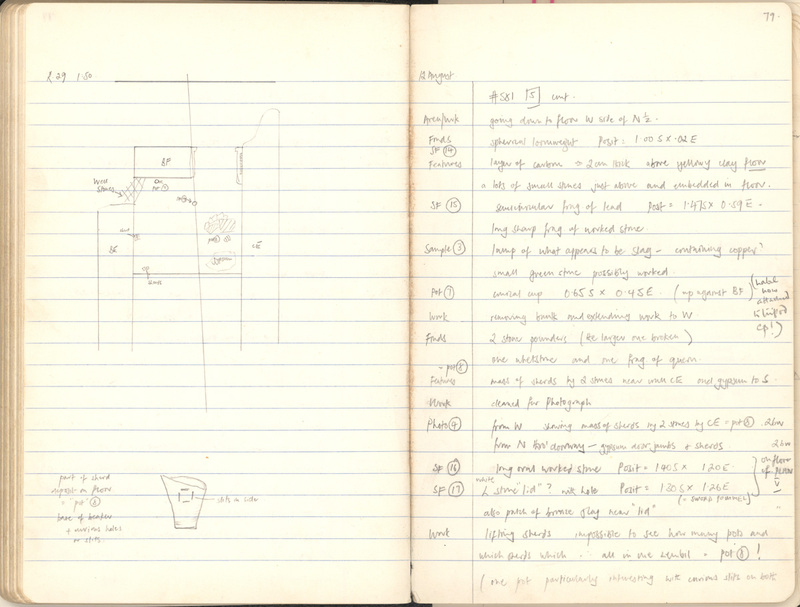 2.29 1.50
BF
Wall
stones
pot
BE
CE
part of sherd
deposit on floor
= "pot" (8)
base of beaker
+ curious holes
or slits
slits in side
79.
12 August
#581 [5] cont.
Area/work going down to floor W side of N ½.
Finds spherical loomweight Posit = 1.00 S x .02 E
SF (14)
Features layer of carbon 2 cm thick above yellowy clay floor
lots of small stones just above and embedded in floor.
SF (15) semicircular frag of lead Posit = 1.47 S x 0.59 E -
long sharp frag of worked stone
Sample (3) lump of what appears to be slag - containing copper?
small green stone possibly worked.
Pot (7) conical cup 0.65 S x 0.45 E. (up against BF)
Work removing bank and extending work to W
Finds 2 stone pounders (the larger one broken)
one whetstone and one frag of quern.
~ pot (8)
Features mass of sherds by 2 stones near wall CE and gypsum to S.
Work cleaned for Photograph
Photo (4) from W showing mass of sherds by 2 stones by CE = pot (8)
from N thro' doorway - gypsum door jambs + sherds
SF (16) long oval worked stone Posit = 1.40 S x 1.20 E.
on floor
SF (17) white stone "lid"? with hole Posit = 1.30 S x 1.26 E
also patch of bronze slag near "lid"
Work lifting sherds impossible to see how many pots and
which sherds which ∴ all in one zembil = pot (8)!
(one pot particularly interesting with curious slits on both